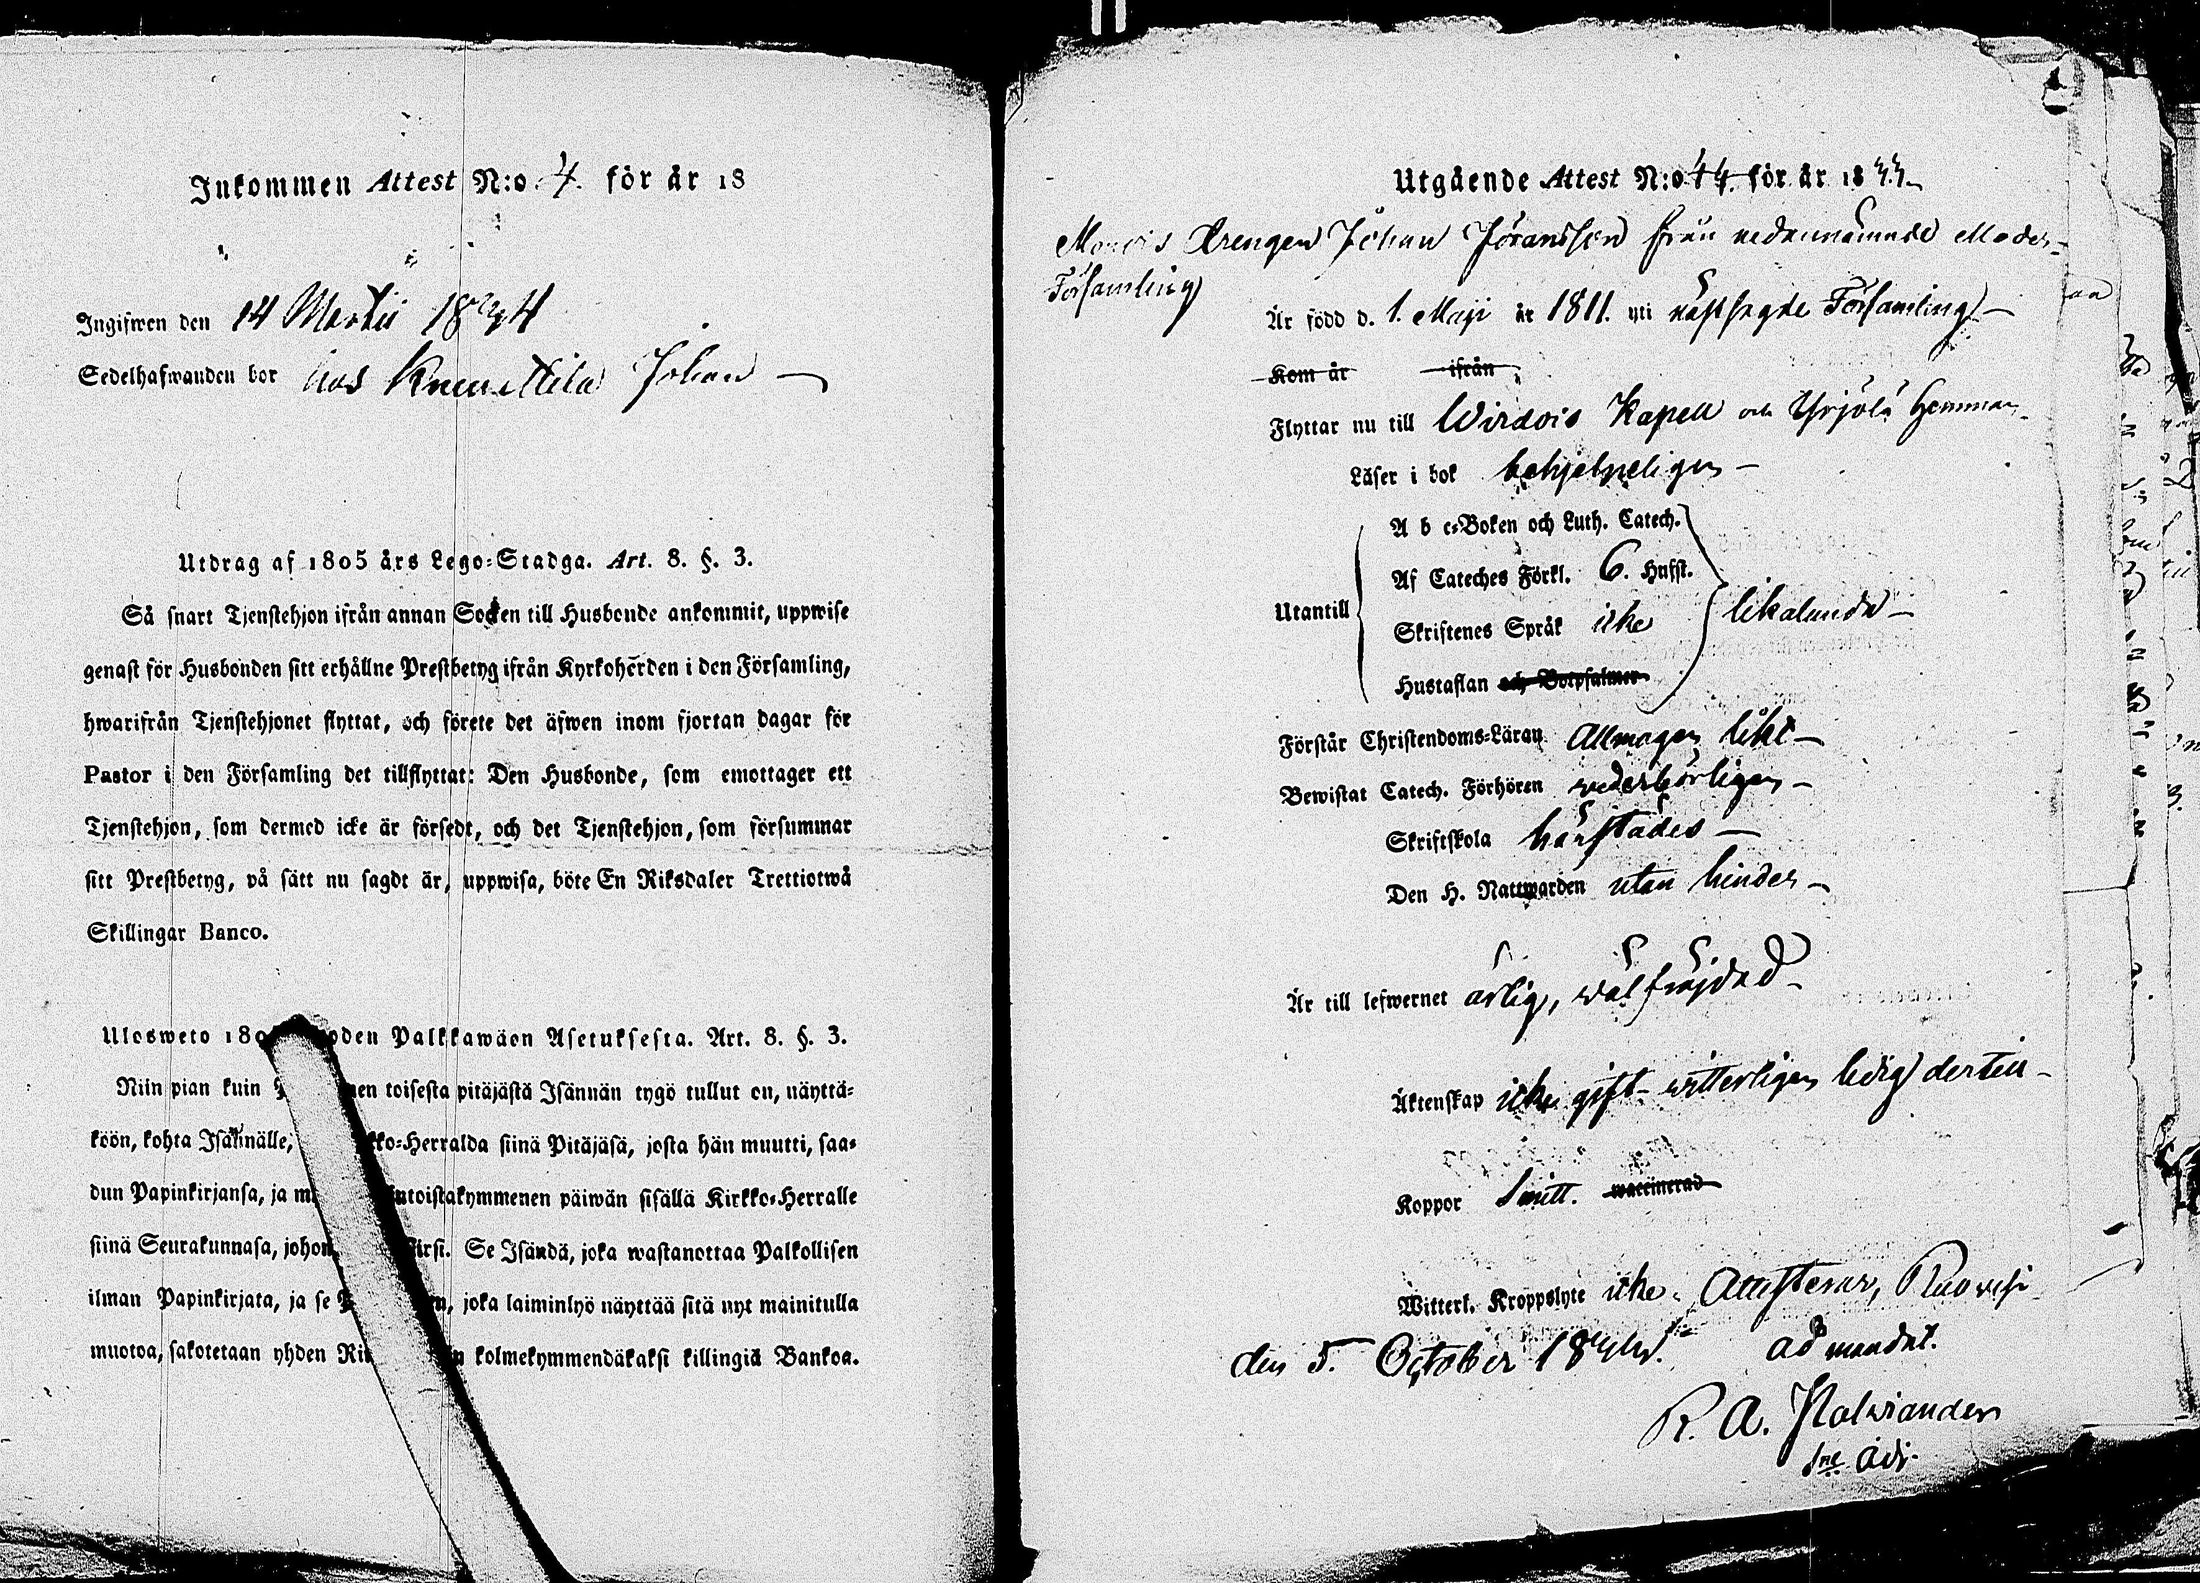 Inkommen Attest N:o 4. för år 18
Ingifwen den 14 Martii 1844
Sedelhafwanden bor hos Knuuttila Johan —
Utdrag af 1805 års Lego-Stadga. Art. 8. §. 3.
Så snart Tjenstehjon ifrån annan Socken till Husbonde ankommit, uppwise
genast för Husbonden sitt erhållne Prestbetyg ifrån Kyrkoherden i den Församling,
hwarifrån Tjenstehjonet flyttat, och förete det äfwen inom fjortan dagar för
Pastor i den Församling det tillflyttat: Den Husbonde, som emottager ett
Tjenstehjon, som dermed icke är försedt, och det Tjenstehjon, som försummar
sitt Prestbetyg, på sätt nu sagdt är, uppwisa, böte En Riksdaler Trettiotwå
Skillingar Banco.
Ulosweto 180 oden Palkkawäen Asetuksesta. Art. 8. §. 3.
Niin pian kuin en toisesta pitäjästä Isännän tygö tullut on, näyttä-
köön, kohta Isännälle, ko-Herralda siinä Pitäjäsä, josta hän muutti, saa-
dun Papinkirjansa, ja m utoistakymmenen päiwän sisällä Kirkko-Herralle
siinä Seurakunnasa, johon irsi. Se Isändä, joka wastanottaa Palkollisen
ilman Papinkirjata, ja se P n, joka laiminlyö näyttää sitä nyt mainitulla
muotoa, sakotetaan yhden Ri n kolmekymmendäkaksi killingiä Bankoa.
Utgående Attest N:o 44. för år 1844
Drengen Johan Jöransson från nedannämnde Moder-
Församling
Är född d. 1. Maji år 1811. uti nästsagde Församling —
Kom år ifrån
Flyttar nu till Wirdois Kapell och Yrjölä Hemman
Läser i bok behjelpeligen —
A b c-Boken och Luth. Catech.
Af Cateches Förkl. 6. Hufst.
Utantill likalunda —
Skriftenes Språk icke
Hustaflan och Botpsalmer
Förstår Christendoms-Läran Allmogen likt —
Bewistat Catech. Förhören wederbörligen —
Skriftskola härstädes —
Den H. Nattwarden utan hinder —
Är till lefwernet ärlig, wälfräjdad —
Äktenskap icke gift – witterligen ledig dertill —
Koppor haft. waccinerad
Witterl. Kroppslyte icke. Attesterar, Ruovesi
den 5. October 1844. ad mandat.
R. A.
Sne Adj.